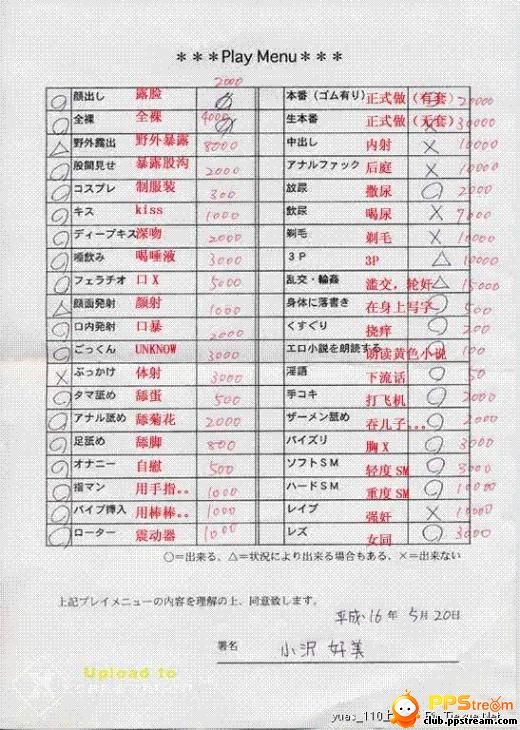 ***Play Menu***
2000
○ 顔出し 露脸 本番（ゴム有り）正式做（有套）○ 20000
○ 全裸 全裸 4000 生本番 正式做（无套）× 30000
△ 野外露出 野外暴露 8000 中出し 内射 × 10000
○ 股間見せ 暴露股沟 2000 アナルファック 后庭 × 10000
○ コスプレ 制服装 300 放尿 撒尿 ○ 2000
○ キス kiss 1000 飲尿 喝尿 × 7000
○ ディープキス 深吻 2000 剃毛 剃毛 × 10000
○ 唾飲み 喝唾液 3000 3P 3P △ 10000
○ フェラチオ 口X 5000 乱交・輪姦 滥交，轮奸 △ 15000
△ 顔面発射 颜射 1000 身体に落書き 在身上写字 ○ 500
○ 口内発射 口暴 2000 くすぐり 挠痒 ○ 200
○ ごっくん UNKNOW 3000 エロ小説を朗読する 朗读黄色小说 ○ 100
× ぶっかけ 体射 3000 淫語 下流话 ○ 50
○ タマ舐め 舔蛋 500 手コキ 打飞机 ○ 2000
○ アナル舐め 舔菊花 2000 ザーメン舐め 吞儿子... ○ 2000
○ 足舐め 舔脚 800 パイズリ 胸X ○ 3000
○ オナニー 自慰 500 ソフトSM 轻度SM ○ 3000
○ 指マン 用手指。。 1000 ハードSM 重度SM ○ 10000
○ バイブ挿入 用棒棒。。 1000 レイプ 强奸 × 10000
○ ローター 震动器 1000 レズ 女同 ○ 3000
○＝出来る、△＝状況により出来る場合もある、×＝出来ない
上記プレイメニューの内容を理解の上、同意致します。
平成16年 5月20日
署名 小沢 好美
Upload to
PPStream
club.ppstream.com